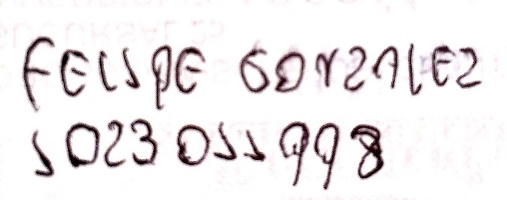 FELIPE GONZALEZ
1023011998